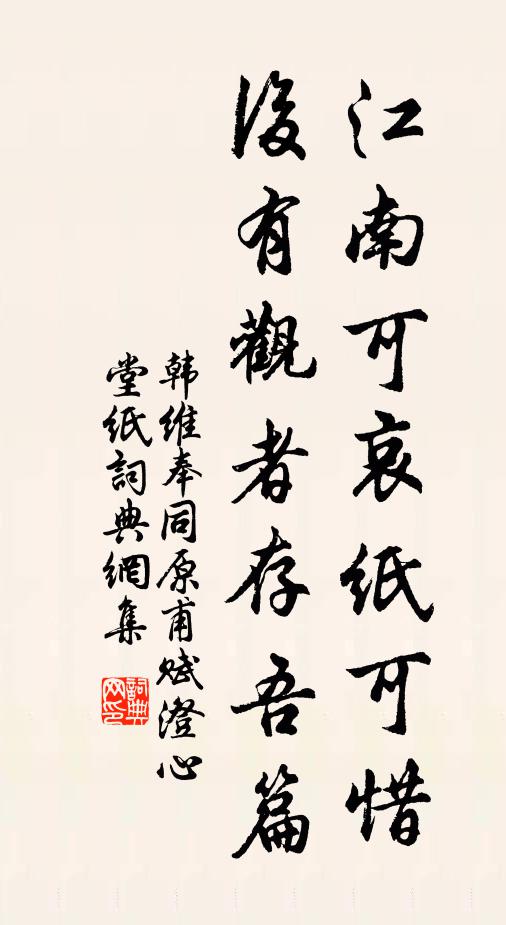 江南可哀纸可惜
後有觀者存吾篇
韩维奉同原甫赋澄心
堂纸詞典網集
詞典网印